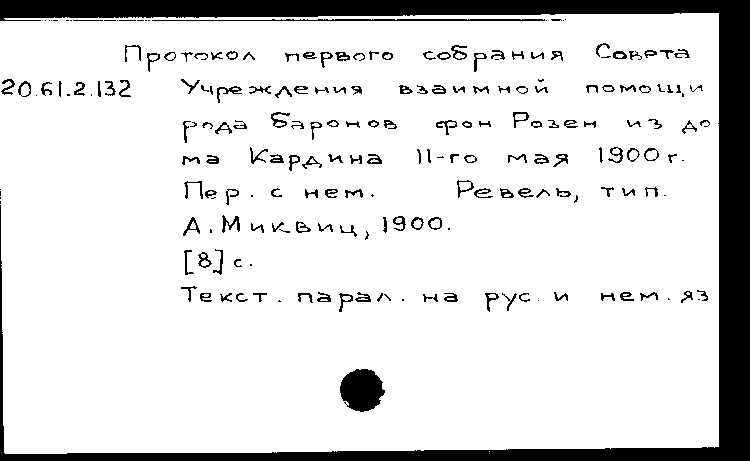 Протокол первого собрания Совета
20.61.2.132 Учреждения взаимной помощи
рода баронов фон Розен из до
ма Кардина 11-го мая 1900 г.
Пер. с нем. Ревель, тип.
А. Миквиц, 1900.
[8] с.
Текст. парал. на рус. и нем. яз